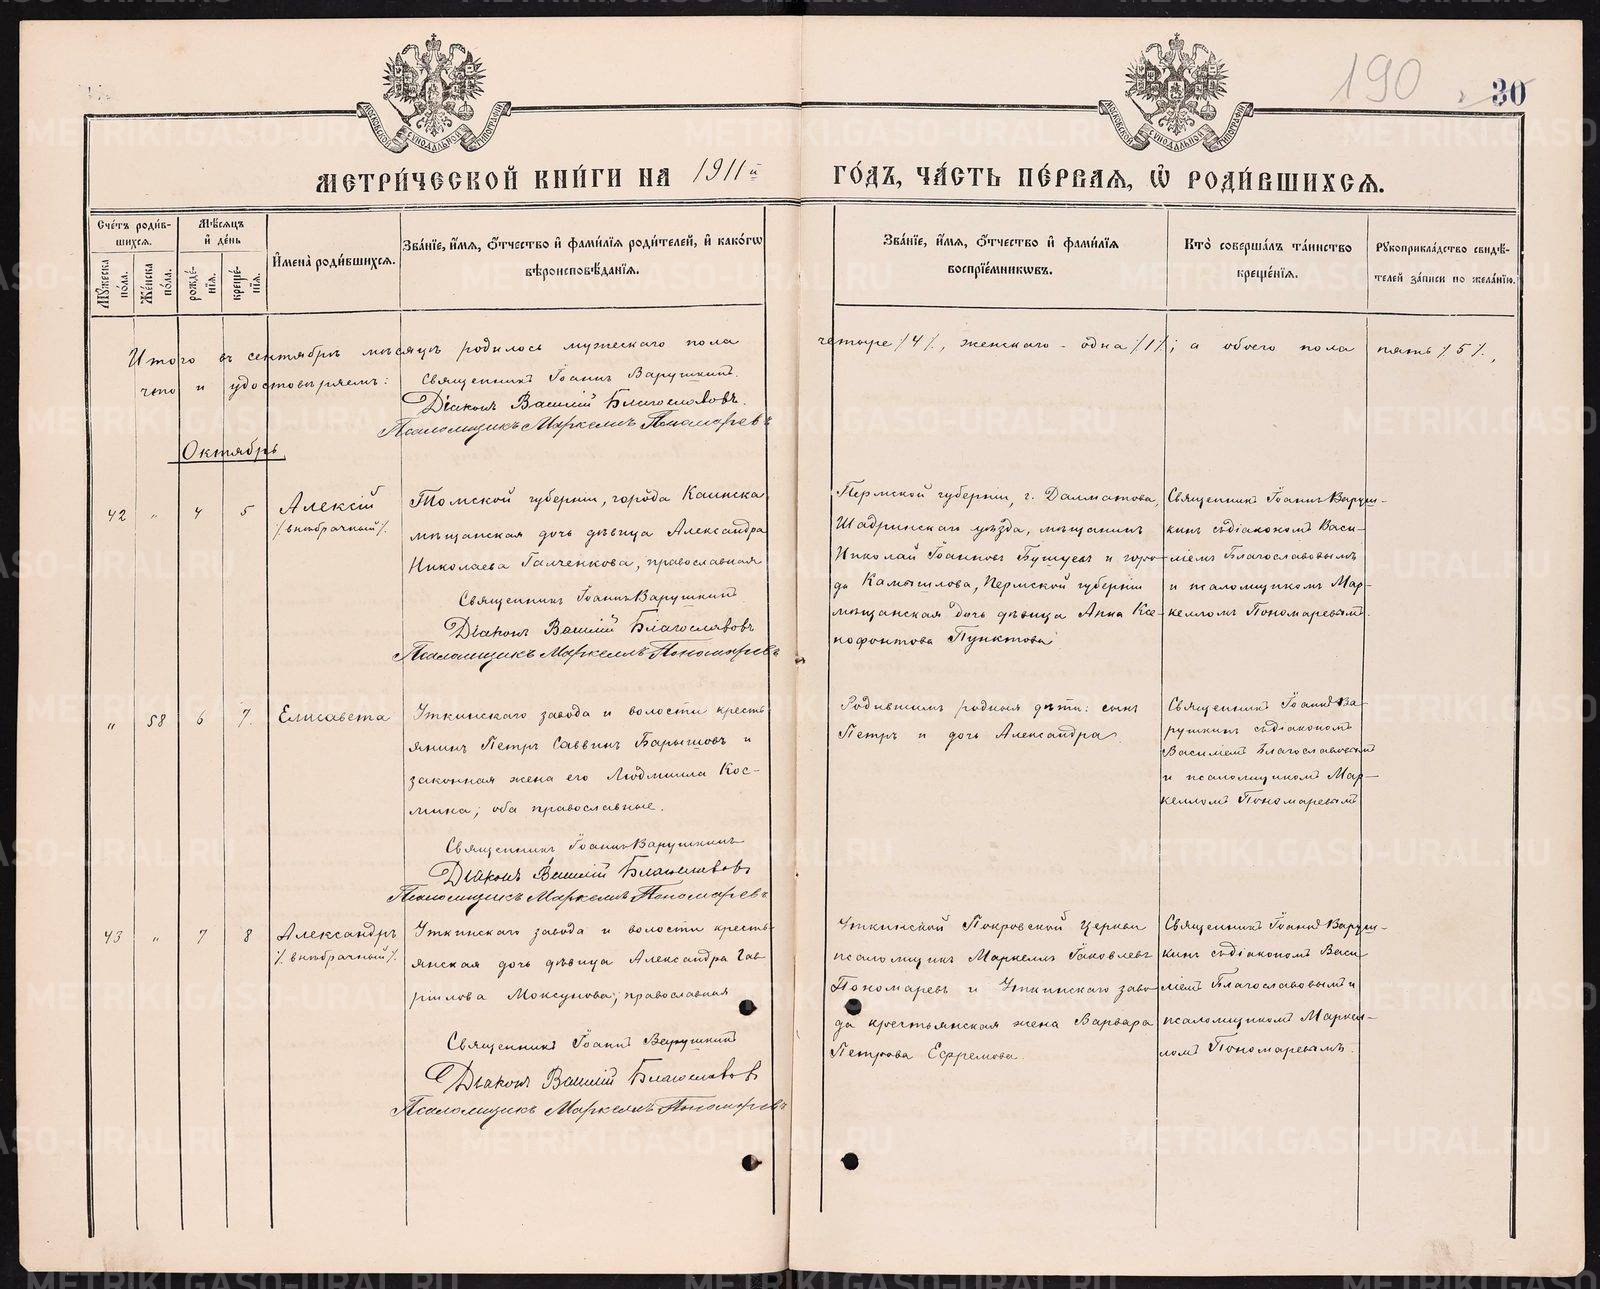 190
30
МОСКОВСКОЙ СѴНОДАЛЬНОЙ ТИПОГРАФІИ
МОСКОВСКОЙ СѴНОДАЛЬНОЙ ТИПОГРАФІИ
МЕТРИ́ЧЕСКОЙ КНИ́ГИ НА 1911й ГО́ДЪ, ЧА́СТЬ ПЕ́РВАѦ, Ѡ РОДИ́ВШИХСѦ.
Сче́тъ роди́в-
шихсѧ.
Мѣ́сѧцъ
и҆ де́нь
Мꙋ́жеска
по́ла.
Же́нска
по́ла.
рожде́-
нїѧ.
креще́-
нїѧ.
И҆мена̀ роди́вшихсѧ.
Зва́нїе, и҆́мѧ, ѻ҆́тчество и҆ фами́лїѧ роди́телей, и҆ како́гѡ
вѣроисповѣ́данїѧ.
Зва́нїе, и҆́мѧ, ѻ҆́тчество и҆ фами́лїѧ
воспрїе́мникѡвъ.
Кто̀ соверша́лъ та́инство
креще́нїѧ.
Рꙋкоприкла́дство свидѣ́-
телей за́писи по жела́нїю.
Итого въ сентябрѣ мѣсяцѣ родилось мужескаго пола четыре /4/, женскаго - одна /1/; а обоего пола пять /5/,
что и удостовѣряемъ:
Священникъ Іоаннъ Варушкинъ.
Діаконъ Василій Благославовъ.
Псаломщикъ Маркеллъ Пономаревъ
Октябрь
42 „ 4 5
Алексій
/внѣбрачный/.
Томской губерніи, города Каинска,
мѣщанская дочь дѣвица Александра
Николаева Галченкова, православная
Священникъ Іоаннъ Варушкинъ
Діаконъ Василій Благославовъ
Псаломщикъ Маркеллъ Пономаревъ
Пермской губерніи, г. Далматова,
Шадринскаго уѣзда, мѣщанинъ
Николай Іоанновъ Бушуевъ и горо-
да Камышлова, Пермской губерніи
мѣщанская дочь дѣвица Анна Ксе-
нофонтова Пунктова
Священникъ Іоаннъ Варуш-
кинъ съ діакономъ Васи-
ліемъ Благославовымъ
и псаломщикомъ Мар-
келломъ Пономаревымъ.
„ 58 6 7.
Елисавета
Уткинскаго завода и волости кресть-
янинъ Петръ Саввинъ Барышовъ и
законная жена его Людмилла Кос-
мина; оба православные.
Священникъ Іоаннъ Варушкинъ
Діаконъ Василій Благославовъ
Псаломщикъ Маркеллъ Пономаревъ
Родившимъ родныя дѣти: сынъ
Петръ и дочь Александра.
Священникъ Іоаннъ Ва-
рушкинъ съ діакономъ
Василіемъ Благославовымъ
и псаломщикомъ Мар-
келломъ Пономаревымъ
43 „ 7 8
Александръ
/внѣбрачный/.
Уткинскаго завода и волости кресть-
янская дочь дѣвица Александра Гав-
рилова Моксунова; православная
Священникъ Іоаннъ Варушкинъ
Діаконъ Василій Благославовъ
Псаломщикъ Маркеллъ Пономаревъ
Уткинской Покровской церкви
псаломщикъ Маркеллъ Іаковлевъ
Пономаревъ и Уткинскаго заво-
да крестьянская жена Варвара
Петрова Ефремова.
Священникъ Іоаннъ Варуш-
кинъ съ діакономъ Васи-
ліемъ Благославовымъ и
псаломщикомъ Маркел-
ломъ Пономаревымъ.
METRIKI.GASO-URAL.RU